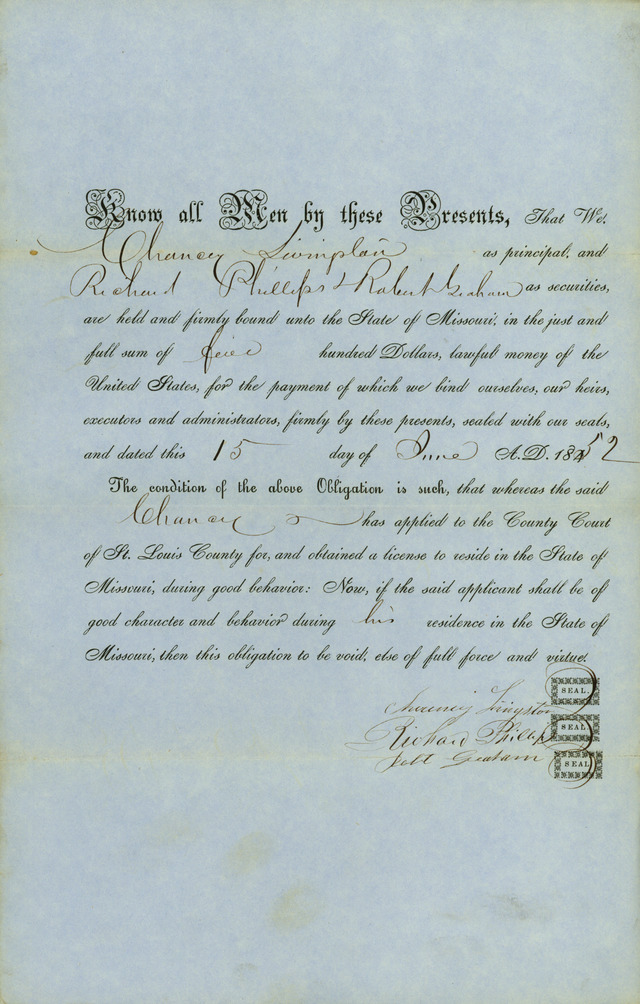 Know all Men by these Presents, That We,
Chancey Livingston as principal, and
Richard Phillips & Robert Graham as securities,
are held and firmly bound unto the State of Missouri, in the just and
full sum of five hundred Dollars, lawful money of the
United States, for the payment of which we bind ourselves, our heirs,
executors and administrators, firmly by these presents, sealed with our seals,
and dated this 15 day of June A.D. 1852
The condition of the above Obligation is such, that whereas the said
Chancey has applied to the County Court
of St. Louis County for, and obtained a license to reside in the State of
Missouri, during good behavior: Now, if the said applicant shall be of
good character and behavior during his residence in the State of
Missouri, then this obligation to be void, else of full force and virtue.
SEAL
Livingston
SEAL
Richard Philips
Robt Graham
SEAL